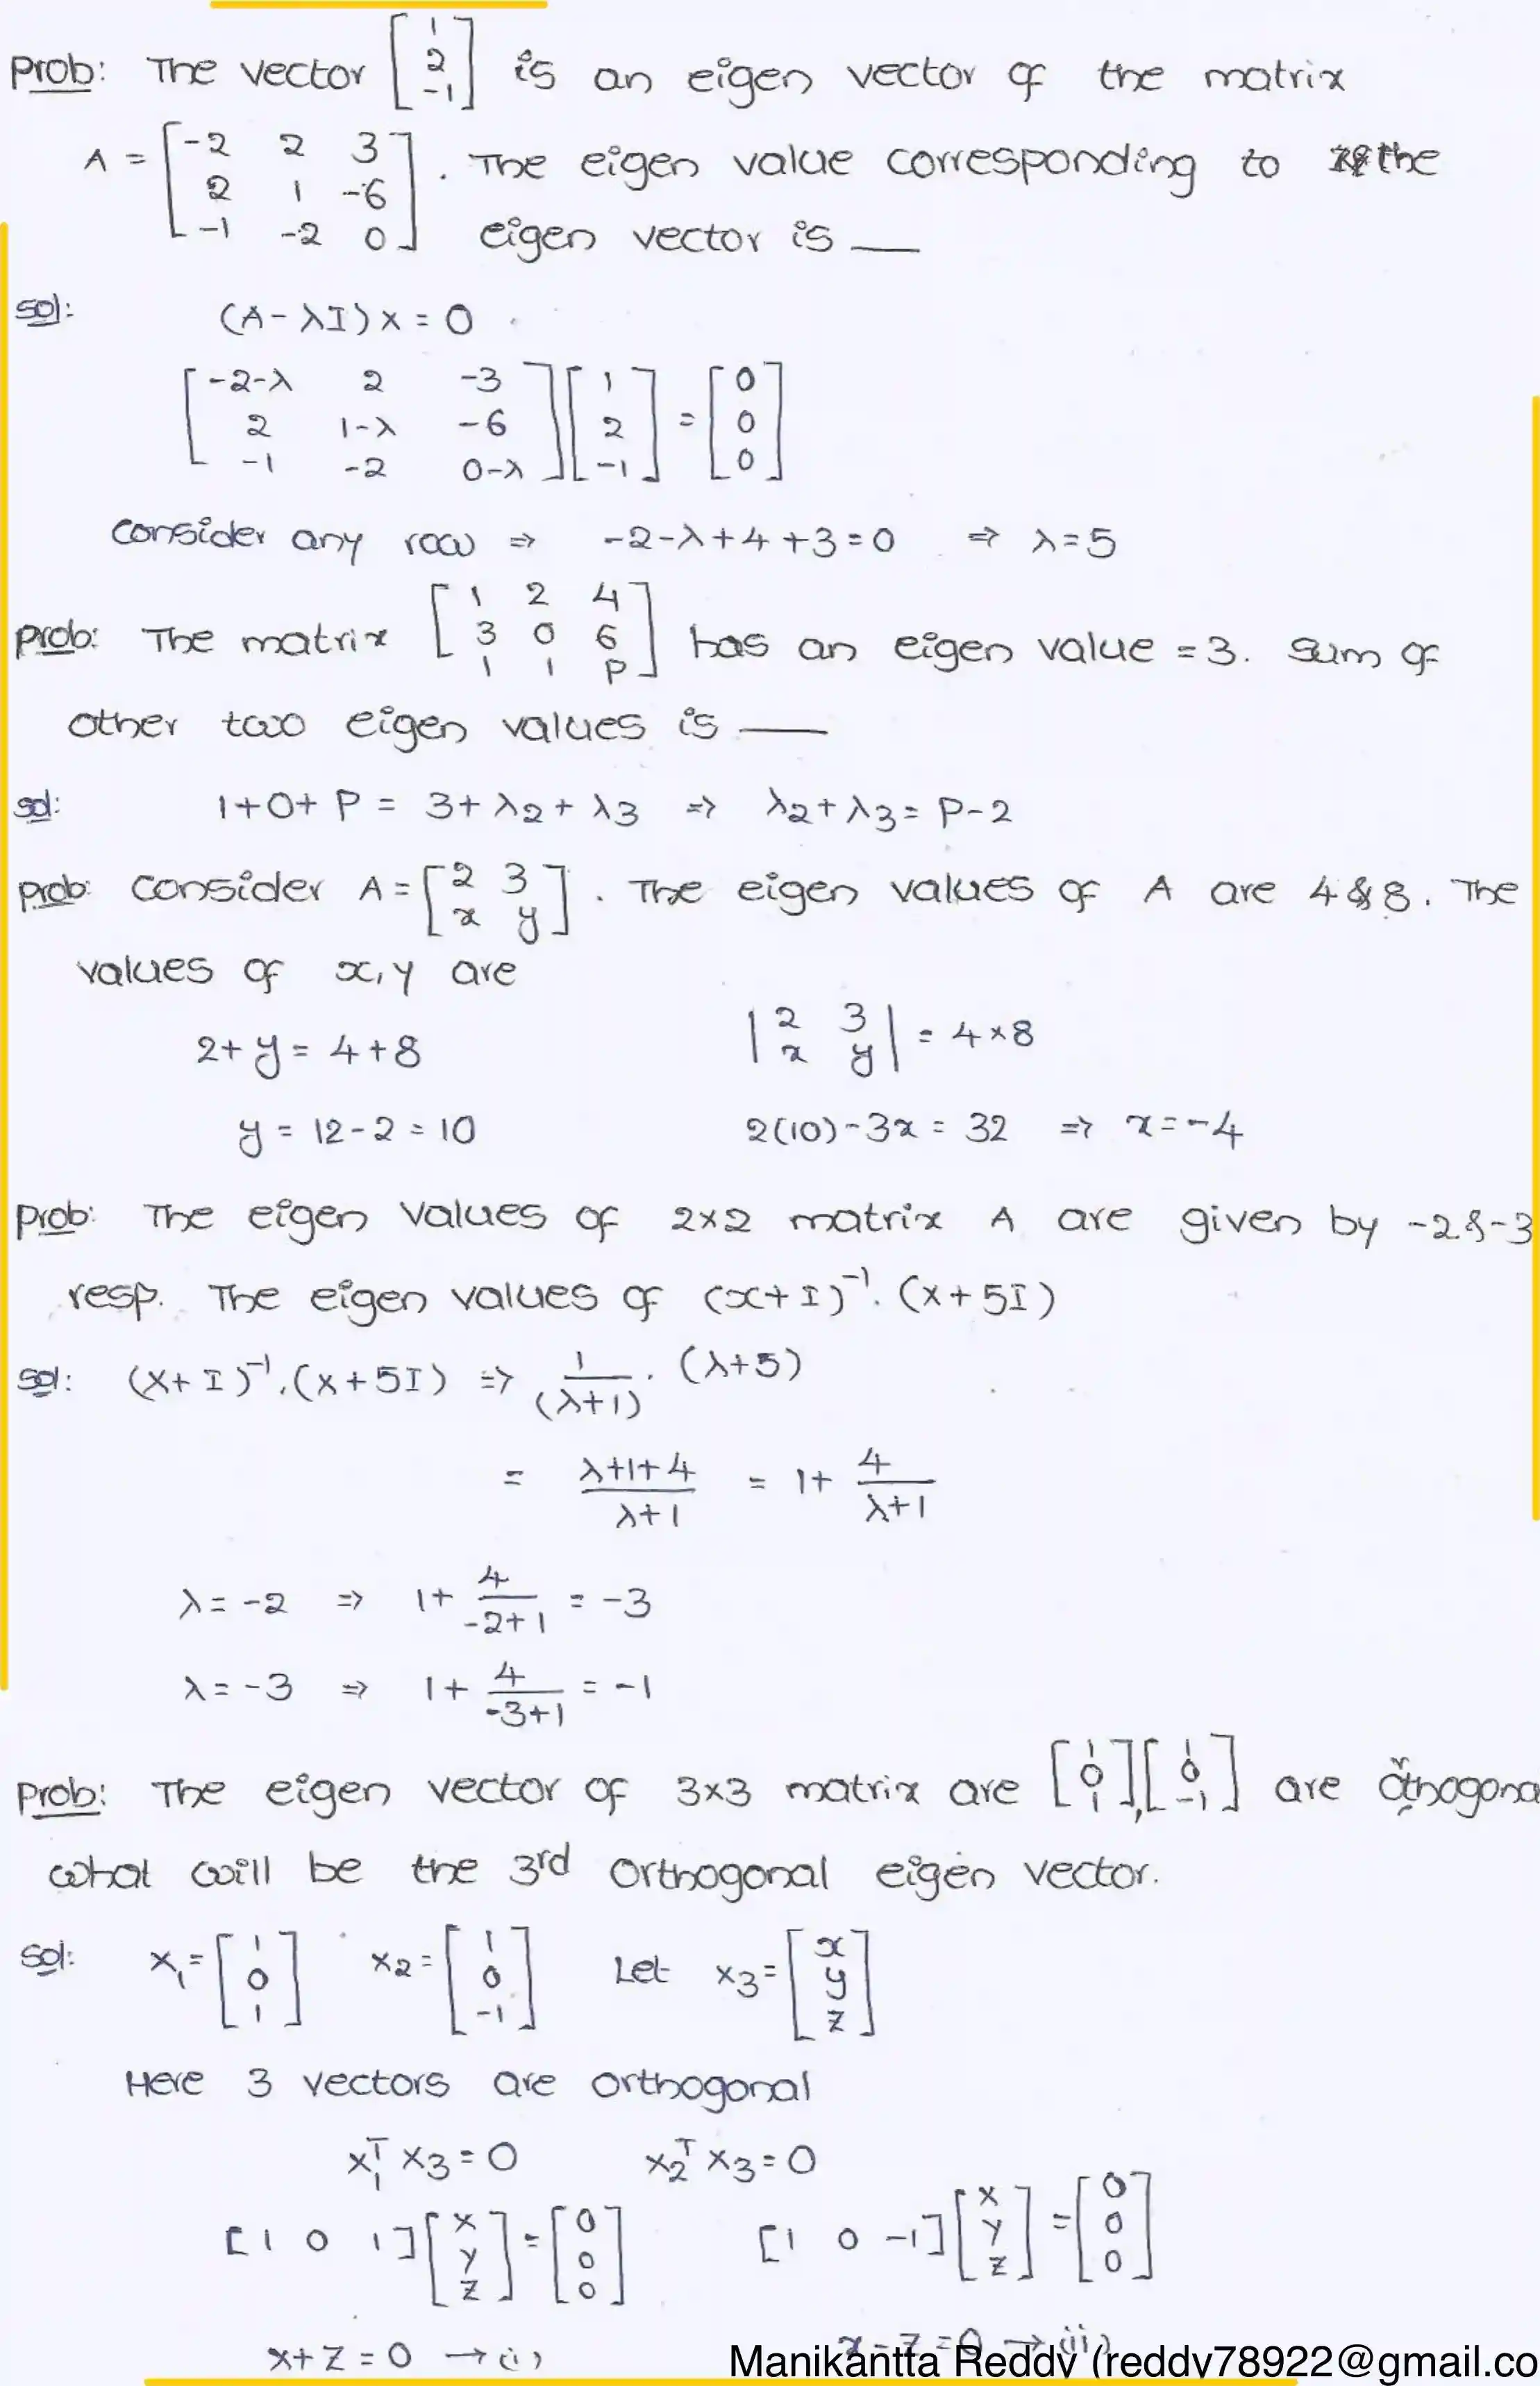 Prob: The vector [1 2 -1] is an eigen vector of the matrix
A = [-2 2 3; 2 1 -6; -1 -2 0]. The eigen value corresponding to the
eigen vector is __
sol: (A-λI)x = 0
[-2-λ 2 -3; 2 1-λ -6; -1 -2 0-λ] [1; 2; -1] = [0; 0; 0]
Consider any row ⇒ -2-λ+4+3=0 ⇒ λ=5
Prob: The matrix [1 2 4; 3 0 6; 1 1 P] has an eigen value = 3. Sum of
other two eigen values is __
sol: 1+0+P = 3+λ2+λ3 ⇒ λ2+λ3 = P-2
Prob: Consider A = [2 3; x y]. The eigen values of A are 4 & 8. The
values of x, y are
2+y = 4+8 |2 3; x y| = 4×8
y = 12-2 = 10 2(10)-3x = 32 ⇒ x = -4
Prob: The eigen values of 2×2 matrix A are given by -2 & -3
resp. The eigen values of (x+I)⁻¹. (x+5I)
Sol: (x+I)⁻¹.(x+5I) ⇒ 1/(λ+1) . (λ+5)
= (λ+1+4)/(λ+1) = 1+ 4/(λ+1)
λ = -2 ⇒ 1+ 4/(-2+1) = -3
λ = -3 ⇒ 1+ 4/(-3+1) = -1
Prob: The eigen vector of 3×3 matrix are [1; 0; 1], [1; 0; -1] are orthogona
what will be the 3rd orthogonal eigen vector.
Sol: x1 = [1; 0; 1] x2 = [1; 0; -1] Let x3 = [x; y; z]
Here 3 vectors are orthogonal
x1ᵀ x3 = 0 x2ᵀ x3 = 0
[1 0 1] [x; y; z] = [0; 0; 0] [1 0 -1] [x; y; z] = [0; 0; 0]
x+z = 0 → (i) x-z = 0 → (ii)
Manikantta Reddy (reddy78922@gmail.co